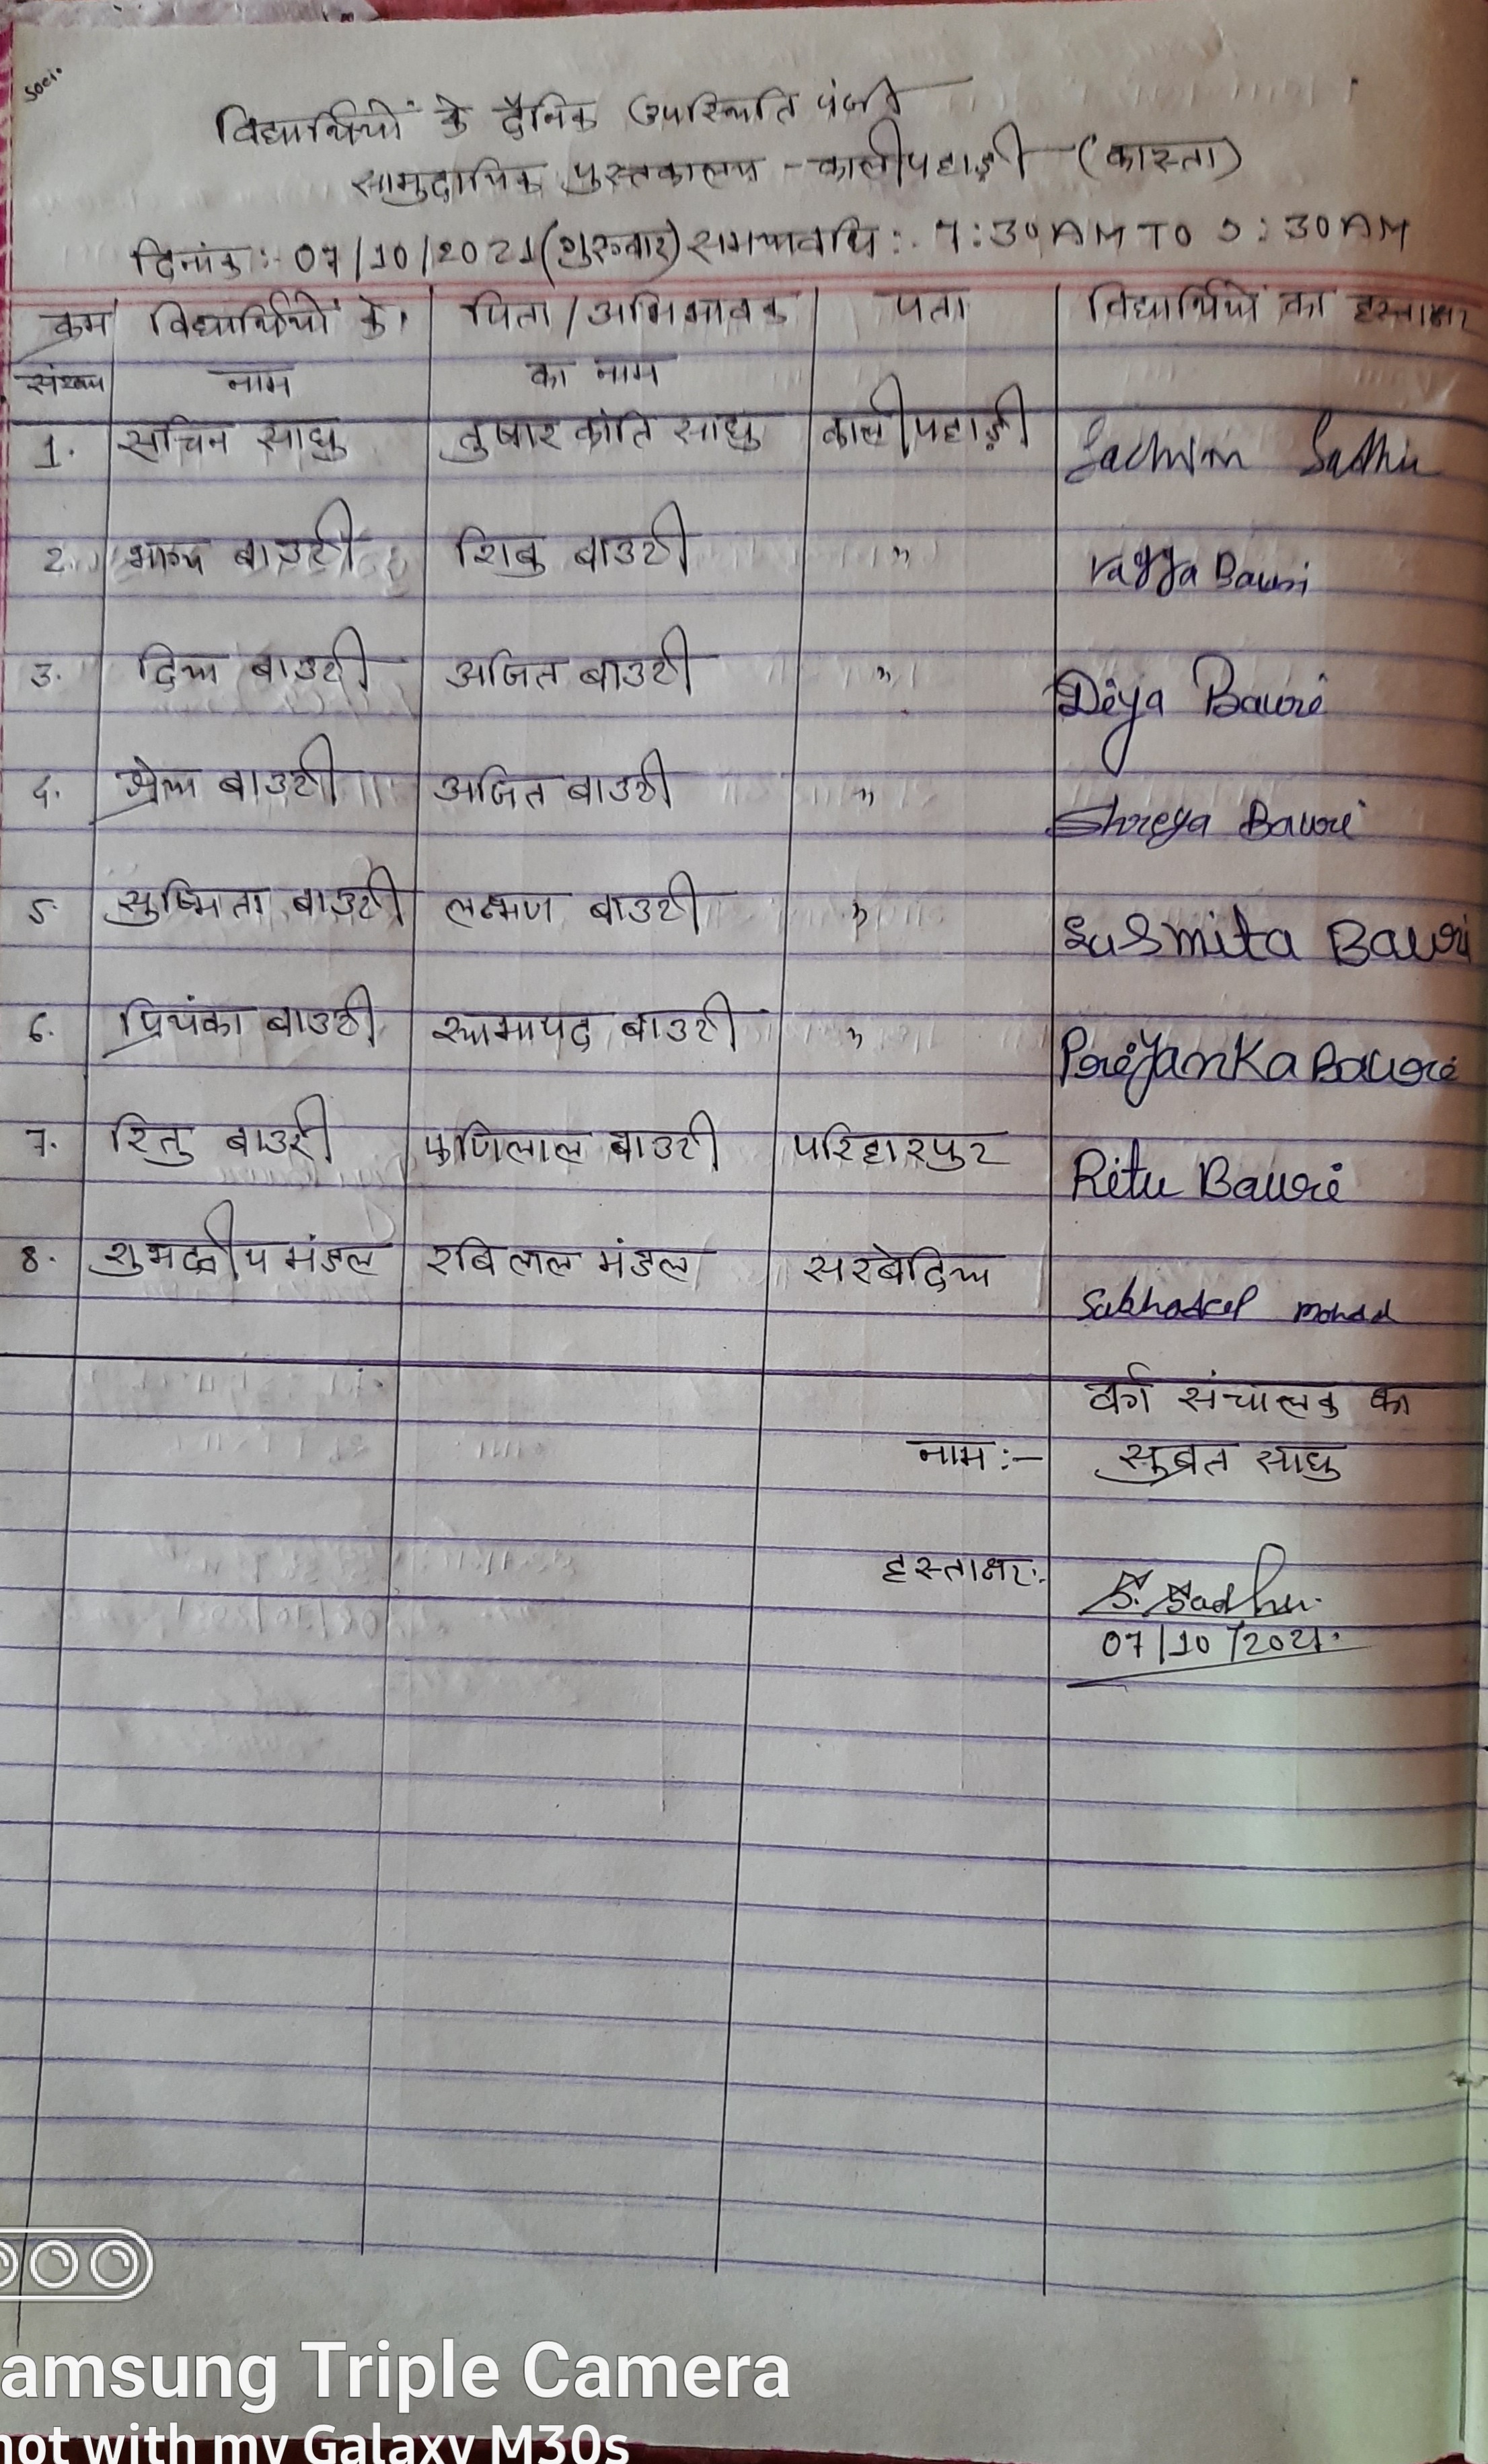 विद्यार्थियों के दैनिक उपस्थिति पंजी
सामुदायिक पुस्तकालय - कालीपहाड़ी (कास्ता)
दिनांक :- 07/10/2021 (गुरुवार) समयावधि :- 7:30 AM TO 9:30 AM
क्रम संख्या विद्यार्थियों के नाम पिता/अभिभावक का नाम पता विद्यार्थियों का हस्ताक्षर
1. सचिन साधु तुषार कांति साधु कालीपहाड़ी Sachin Sadhu
2. भाग्य बाउरी शिबु बाउरी " Bauri
3. दिया बाउरी अजित बाउरी " Diya Bauri
4. श्रेया बाउरी अजित बाउरी " Shreya Bauri
5. सुष्मिता बाउरी लक्ष्मण बाउरी " Susmita Bauri
6. प्रियंका बाउरी श्यामापद बाउरी " Priyanka Bauri
7. रितु बाउरी फणिलाल बाउरी परिहारपुर Ritu Bauri
8. शुभद्वीप मंडल रबि लाल मंडल सरबेदिया
वर्ग संचालक का
नाम :- सुब्रत साधु
हस्ताक्षर :- S. Sadhu
07/10/2021.
amsung Triple Camera
hot with my Galaxy M30s